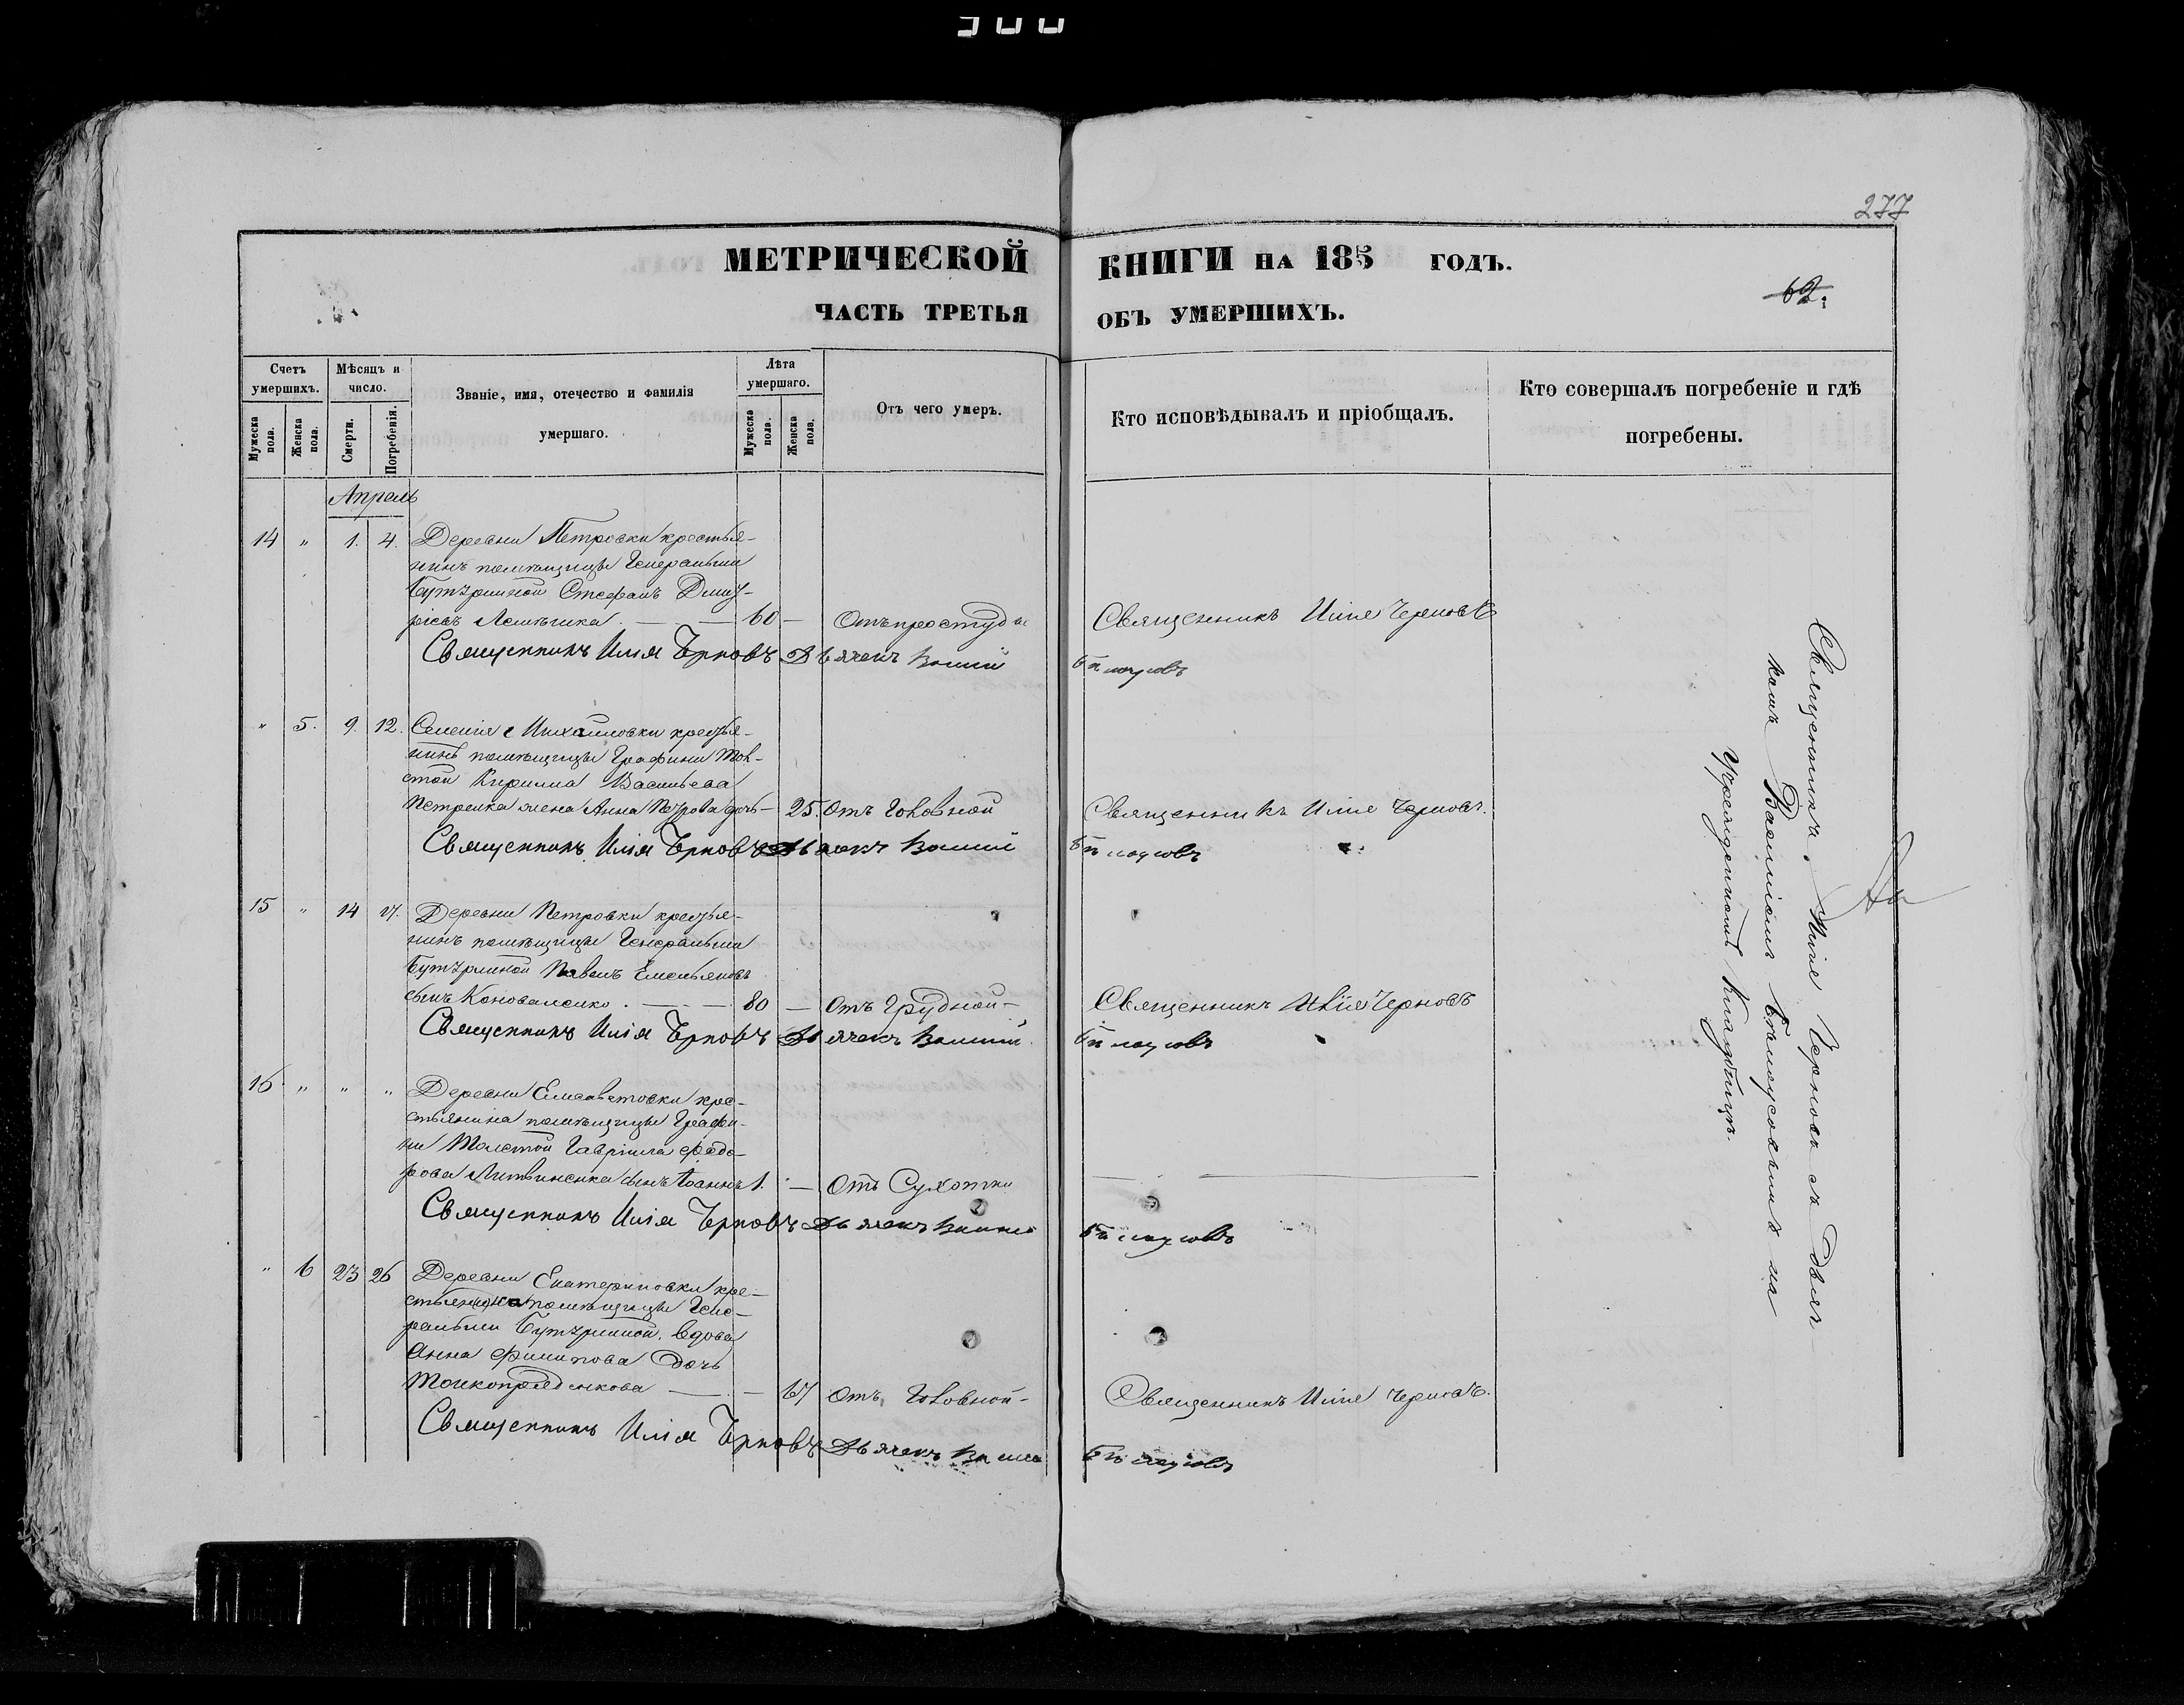 277
МЕТРИЧЕСКОЙ КНИГИ НА 185 ГОДЪ.
62.
ЧАСТЬ ТРЕТЬЯ ОБЪ УМЕРШИХЪ.
Счетъ умершихъ.
Мужеска пола.
Женска пола.
Мѣсяцъ и число.
Смерти.
Погребенія.
Званіе, имя, отечество и фамилія умершаго.
Лѣта умершаго.
Мужеска пола.
Женска пола.
Отъ чего умеръ.
Кто исповѣдывалъ и пріобщалъ.
Кто совершалъ погребеніе и гдѣ погребены.
Апрель
14 " 1. 4. Деревни Петровки крестья-
нинъ помѣщицы Генеральши
Бутурлиной Стефанъ Дмит-
ріевъ 60 — Отъ простуды Священникъ Илія Черновъ
Священникъ Илія Черновъ Дьячекъ Василий Бѣлоусовъ
" 5. 9. 12. Селенія Михайловки крестья-
нинъ помѣщицы Графини Тол-
стой Кирилла Васильева
Петренка жена Анна Петрова дочь — 25. Отъ Головной Священникъ Илія Черновъ.
Священникъ Илія Черновъ Дьячекъ Василий Бѣлоусовъ
15 " 14 17. Деревни Петровки крестья-
нинъ помѣщицы Генеральши
Бутурлиной Павелъ Емельяновъ
сынъ Коноваленко. — 80 — Отъ Грудной — Священникъ Илія Черновъ
Священникъ Илія Черновъ Дьячекъ Василий Бѣлоусовъ
16 " " " Деревни Елисаветовки кре-
стьянина помѣщицы Графи-
ни Толстой Гавріила Федо-
рова Литвиненка сынъ Іоаннъ 1. — Отъ Сухотки —
Священникъ Илія Черновъ Дьячекъ Василий Бѣлоусовъ
" 6 23 26 Деревни Екатериновки кре-
стьянина помѣщицы Гене-
ральши Бутурлиной. вдова
Анна Филипова дочь
Тонкопряденкова — — 67 Отъ Головной — Священникъ Илія Черновъ.
Священникъ Илія Черновъ Дьячекъ Бѣлоусовъ
Священникъ Илія Черновъ съ Дьяч-
комъ Василіемъ Бѣлоусовымъ на
Кладбищѣ.